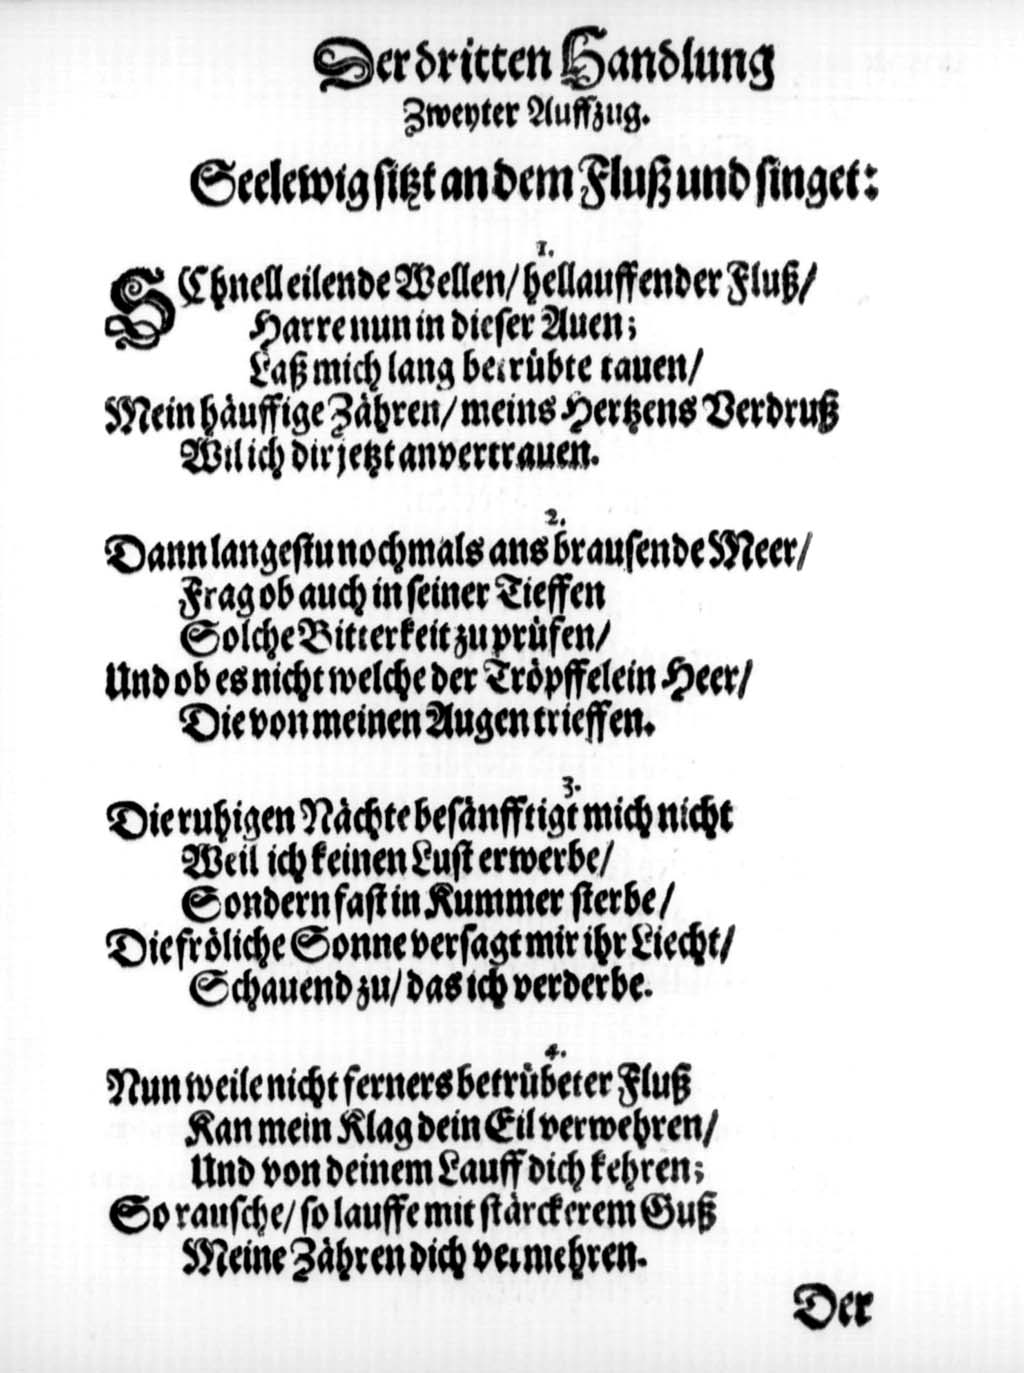 Der dritten Handlung
Zweyter Auffzug.
Seelewig sitzt an dem Fluß und singet:
1.
SChnell eilende Wellen/ hellauffender Fluß/
Harre nun in dieser Auen;
Laß mich lang betrübte tauen/
Mein häuffige Zähren/ meins Hertzens Verdruß
Wil ich dir jetzt anvertrauen.
2.
Dann langestu nochmals ans brausende Meer/
Frag ob auch in seiner Tieffen
Solche Bitterkeit zu prüfen/
Und ob es nicht welche der Tröpffelein Heer/
Die von meinen Augen trieffen.
3.
Die ruhigen Nächte besänfftigt mich nicht
Weil ich keinen Lust erwerbe/
Sondern fast in Kummer sterbe/
Die fröliche Sonne versagt mir ihr Liecht/
Schauend zu/ das ich verderbe.
4.
Nun weile nicht ferners betrübeter Fluß
Kan mein Klag dein Eil verwehren/
Und von deinem Lauff dich kehren;
So rausche/ so lauffe mit stärckerem Guß
Meine Zähren dich vermehren.
Der